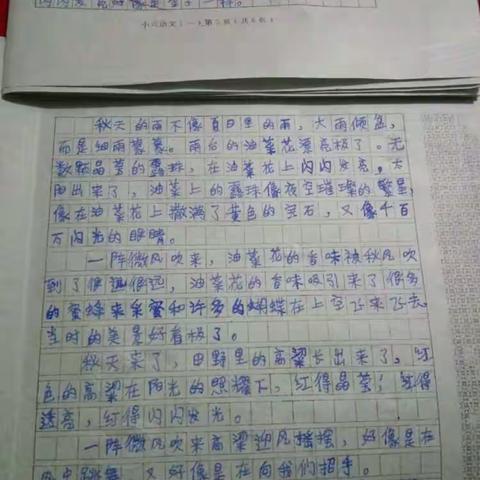 小六语文（一）第5页（共6页）
秋天的雨不像夏日里的雨，大雨倾盆，
而是细雨蒙蒙。雨后的油菜花漂亮极了。无
数颗晶莹的露珠，在油菜花上闪闪发亮，太
阳出来了，油菜上的露珠像夜空璀璨的繁星，
像在油菜花上撒满了黄色的宝石，又像千百
万闪光的眼睛。
一阵微风吹来，油菜花的香味被秋风吹
到了很远很远，油菜花的香味吸引来了很多
的蜜蜂来采蜜和许多的蝴蝶在上空飞来飞去
当时的美景好看极了。
秋天来了，田野里的高粱长出来了，红
色的高粱在阳光的照耀下，红得晶莹；红得
透亮，红得闪闪发光。
一阵微风吹来高粱迎风摇摆，好像是在
风中跳舞，又好像是在向我们招手。